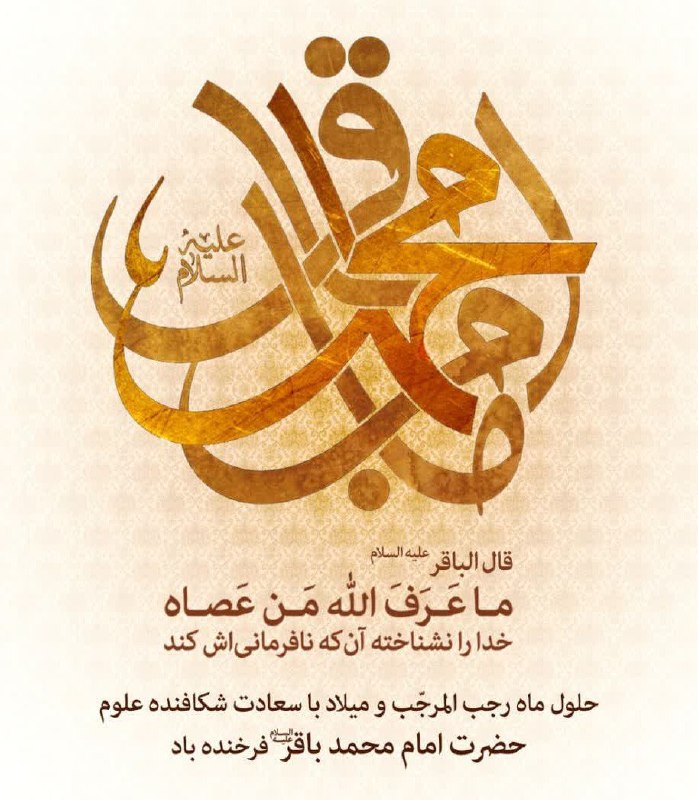 امام محمد باقر
علیه السلام
قال الباقر علیه السلام
ما عَرَفَ الله مَن عَصاه
خدا را نشناخته آن‌که نافرمانی‌اش کند
حلول ماه رجب المرجّب و میلاد با سعادت شکافنده علوم
حضرت امام محمد باقر علیه السلام فرخنده باد